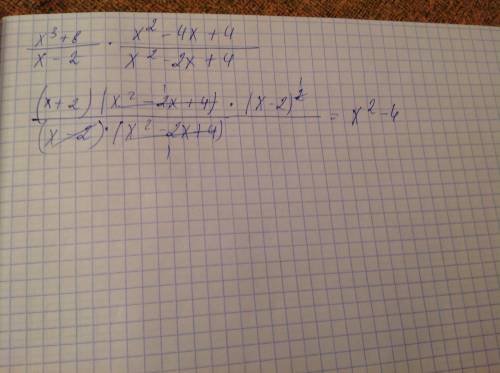 x³+8 / x-2 · x²-4x+4 / x²-2x+4
(x+2)(x²-2x+4)·(x-2)² / (x-2)·(x²-2x+4) = x²-4